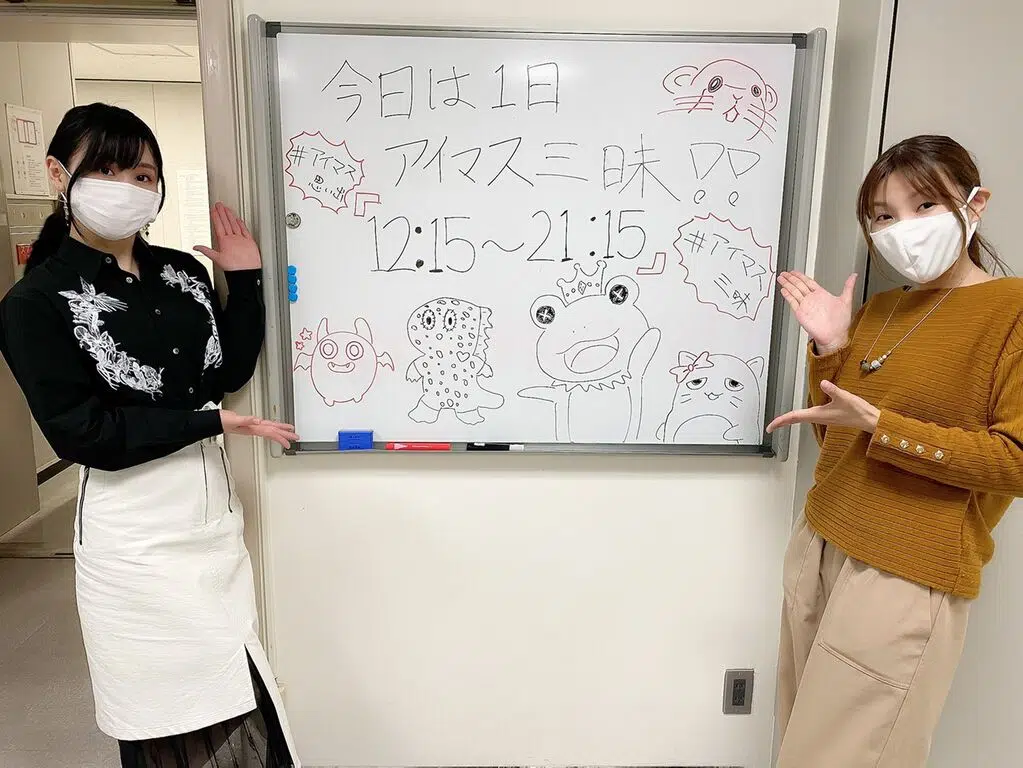 今日は1日
アイマス三昧!!
#アイマス
思い出
12:15〜21:15
#アイマス
三昧